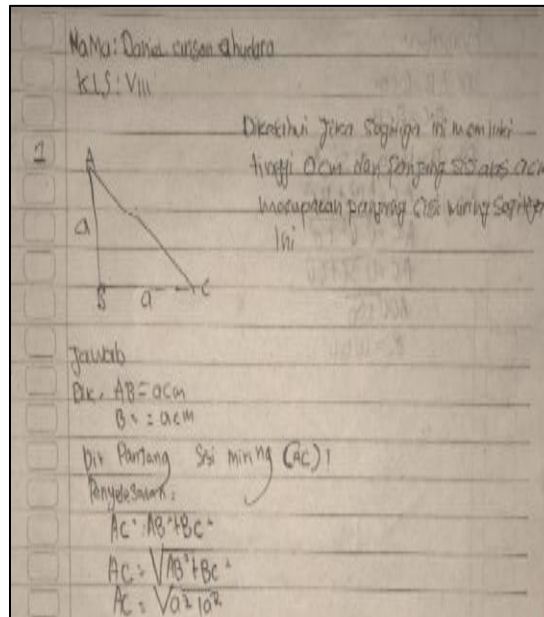 NaMa: Daniel
KLS: VIII
1
Diketahui Jika Segitiga ini memiliki
tinggi acm dan panjang sisi alas acm
panjang sisi miring
Ini
A
a
B a C
Jawab
Dik, AB = acm
B = acm
Dit Panjang Sisi miring (AC)!
Penyelesaian:
AC² = AB² + BC²
AC = √AB² + BC²
AC = √a² + a²